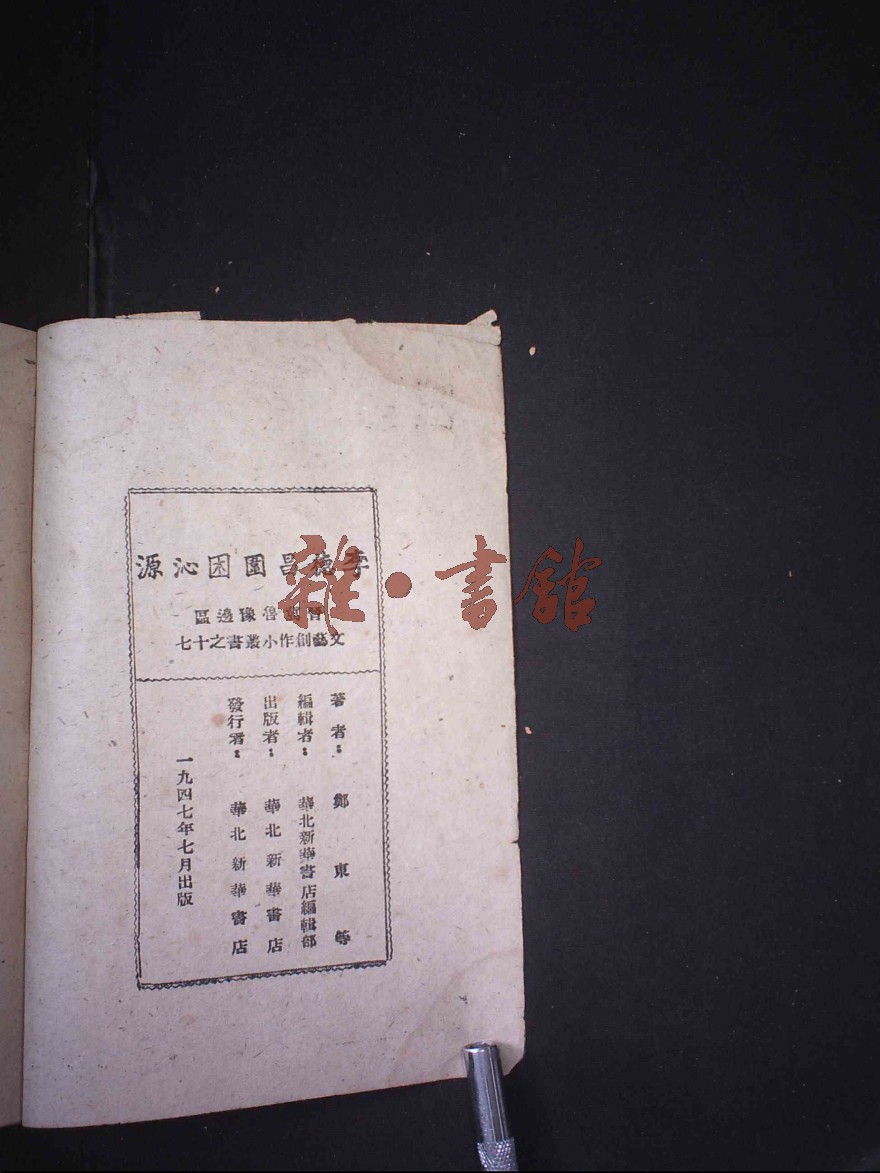 李德昌圍困沁源
晉冀魯豫邊區
文藝創作小叢書之十七
著者：鄭東等
編輯者：華北新華書店編輯部
出版者：華北新華書店
發行者：華北新華書店
一九四七年七月出版
雜·書館